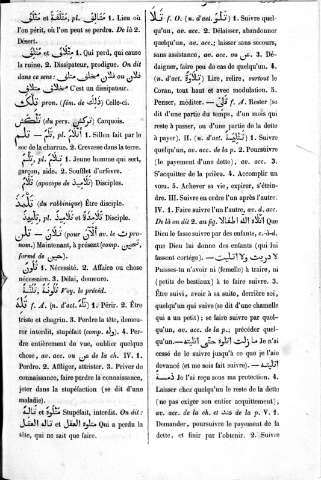 مَتْلَفٌ et مَتْلَفَةٌ, pl. مَتَالِفُ 1. Lieu où
l'on périt, où l'on peut se perdre. De là 2.
Désert.
مُتْلِفٌ et 1. Qui perd, qui cause
la ruine. 2. Dissipateur, prodigue. On dit
dans ce sens : مخلف متلف ou
C'est un dissipateur.
تِلْكَ pron. (fém. de ذٰلِكَ) Celle-ci.
(du pers. ) Carquois.
تَلَمٌ — تَلَمَ, pl. أَتْلَامٌ 1. Sillon fait par le
soc de la charrue. 2. Crevasse dans la terre.
تِلْمٌ, pl. 1. Jeune homme qui sert,
garçon, aide. 2. Soufflet d'orfèvre.
(apocope de تلاميذ) Disciples.
تَلْمَذَ (du rabbinique) Être disciple.
تِلْمِيذٌ, pl. تَلَامِيذُ et تَلَامِذَةٌ Disciple.
تلن — تَلَانَ (pour اَلْآنَ av. le ت pro-
non.) Maintenant, à présent (comp. تحين,
formé de حين).
1. Nécessité. 2. Affaire ou chose
nécessaire. 3. Délai, demeure.
Voy. le précéd.
تَلِهَ f. A. (n. d'act. تَلَهٌ) 1. Périr. 2. Être
triste et chagrin. 3. Perdre la tête, demeu-
rer interdit, stupéfait (comp. وله). 4. Per-
dre entièrement du vue, oublier quelque
chose, av. acc. ou عن de la ch. IV. 1.
Perdre. 2. Affliger, attrister. 3. Priver de
connaissance, faire perdre la connaissance,
jeter dans la stupéfaction (se dit d'une
maladie).
مَتْلُوهٌ et تَالِهٌ Stupéfait, interdit. On dit :
تاله العقل et متلوه العقل Qui a perdu la
tête, qui ne sait que faire.
تَلَا f. O. (n. d'act. تُلُوٌّ) 1. Suivre quel-
qu'un, av. acc. 2. Délaisser, abandonner
quelqu'un, après l'avoir suivi; laisser sans secours,
sans assistance, av. acc. ou عن. 3. Dé-
daigner, faire peu de cas de quelqu'un. 4.
(n. d'act. تِلَاوَةٌ) Lire, relire, surtout le
Coran, tout haut et avec modulation. 5.
Penser, méditer. — تَلِيَ f. A. Rester (se dit
d'une partie du temps, d'un mois qui
reste à passer, ou d'une partie de la dette
à payer). II. (n. d'act. ) 1. Suivre
quelqu'un, av. acc. de la p. 2. Poursuivre
(le payement d'une dette), av. acc. 3.
S'acquitter de la prière. 4. Accomplir un
vœu. 5. Achever sa vie, expirer, s'étein-
dre. III. Suivre en cadre l'un après l'autre.
IV. 1. Faire suivre l'un l'autre, av. d. acc.
De là on dit 2. au fig. اتلاه الله اطفالا Que
Dieu le fasse suivre par des enfants, c.-à-d.
que Dieu lui donne des enfants (et qui lui
fassent cortège). — لا دريت ولا اتليت
Puisses-tu n'avoir ni (femelle) à traire, ni
(petits de bestiaux) à te faire suivre. 3.
Être suivi, avoir à sa suite, derrière soi,
quelqu'un qui vous suive (se dit d'une chamelle
qui a un petit); se faire suivre par quel-
qu'un, av. acc. de la p.; précéder quel-
qu'un. — ما زلت اتلوه حتى اتليته Je n'ai
cessé de le suivre jusqu'à ce que je l'aie
devancé (et me sois fait suivre). —
ذمة Je l'ai reçu sous ma protection. 4.
Laisser chez quelqu'un le reste de la dette
(ne pas exiger son entier acquittement),
av. acc. de la ch. et عند de la p. V. 1.
Demander, poursuivre le payement de la
dette, et finir par l'obtenir. 2. Suivre